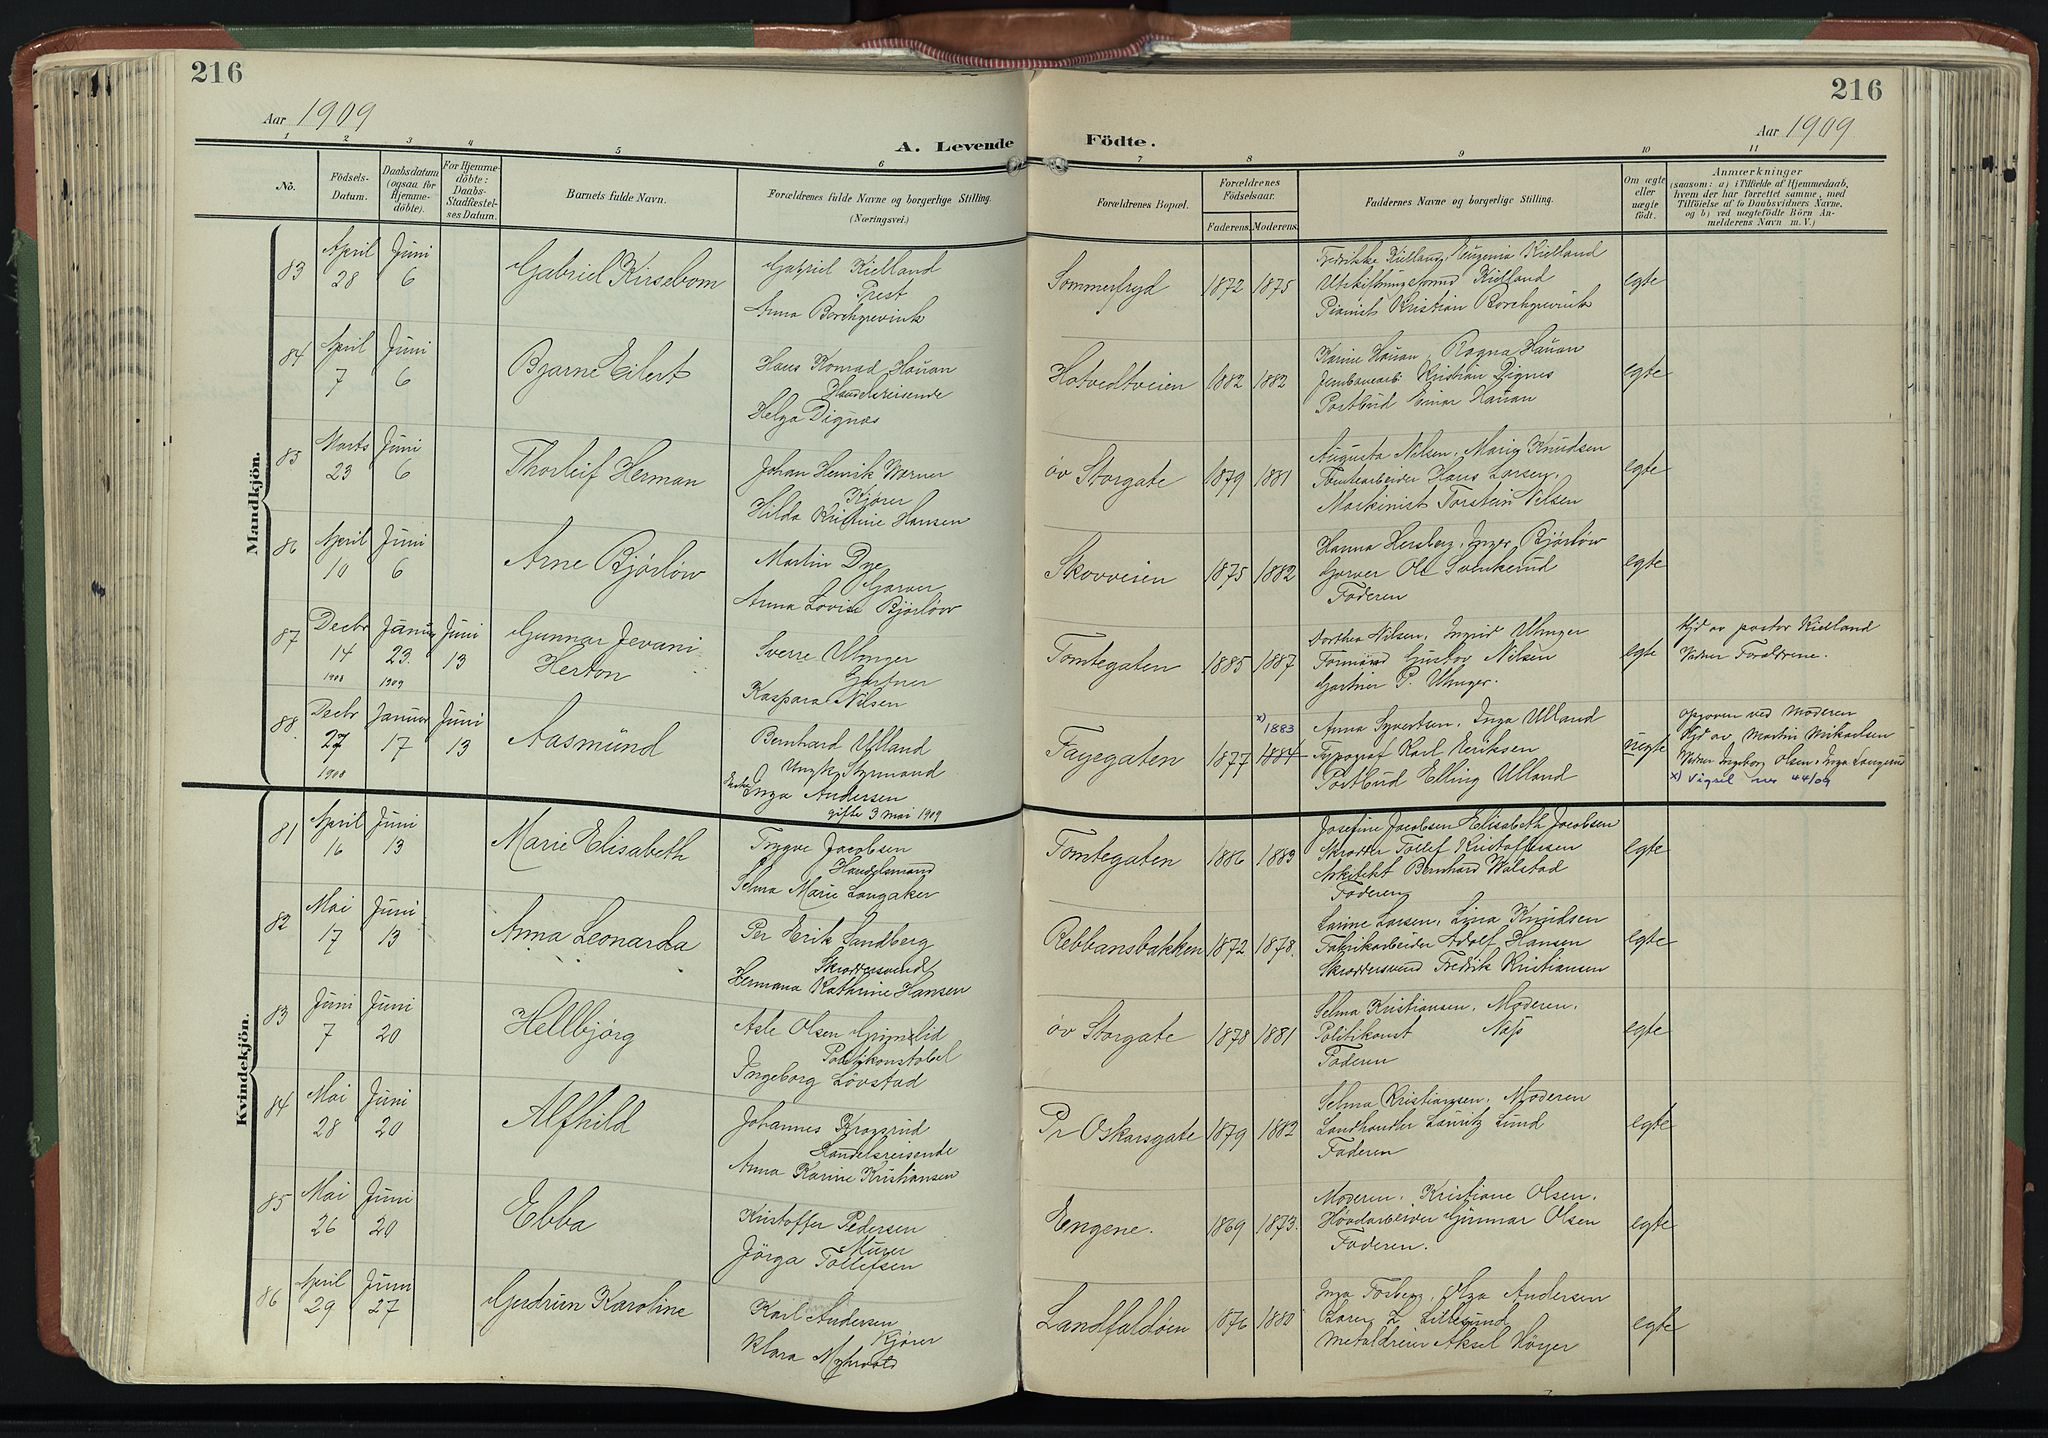 216
Aar 1909
A. Levende
1 2 3 4 5 6
No. Födsels-Datum. Daabsdatum (ogsaa for Hjemme-döbte). For Hjemme-döbte: Daabs-Stadfæstel-ses Datum. Barnets fulde Navn. Forældrenes fulde Navne og borgerlige Stilling. (Næringsvei.)
Mandkjön.
83 April 28 Juni 6 Gabriel Kirsebom Gabriel Kielland
Prest
Anna Borchgrevink
84 April 7 Juni 6 Bjarne Eilert Hans Konrad Hauan
Handelsreisende
Helga Dignæs
85 Marts 23 Juni 6 Thorleif Herman Johan Henrik Werner
Kjører
Hilda Kristine Hansen
86 April 10 Juni 6 Arne Bjørløw Martin Dye
Garver
Anna Lovise Bjørløw
87 Decbr 14 1908 Januar 23 1909 Juni 13 Gunnar Jevani
Herton Sverre
Gartner
Kaspara Nilsen
88 Decbr 27 1908 Januar 17 Juni 13 Aasmund Bernhard Ulland
Ungk. Styrmand
Inga Andersen
gifte 3 mai 1909
Kvindekjön.
81 April 16 Juni 13 Marie Elisabeth Trygve Jacobsen
Handelsmand
Selma Marie Langaker
82 Mai 17 Juni 13 Anna Leonarda Per Erik Sandberg
Skræddersvend
Hermana Kathrine Hansen
83 Juni 7 Juni 20 Hellbjørg Asle Olsen Grimelid
Politikonstabel
Ingeborg Løvstad
84 Mai 28 Juni 20 Alfhild Johannes Krogsrud
Handelsreisende
Anna Karine Kristiansen
85 Mai 26 Juni 20 Ebba Kristoffer Pedersen
Murer
Jörga Tollefsen
86 April 29 Juni 27 Gudrun Karoline Karl Andersen
Kjører
Klara Myhrvold
216
Aar 1909
Födte.
7 8 9 10 11
Forældrenes Bopæl. Forældrenes Födselsaar. Faderens. Moderens. Faddernes Navne og borgerlige Stilling. Om ægte eller uægte födt. Anmærkninger
(saasom: a) i Tilfælde af Hjemmedaab,
hvem der har forrettet samme, med
Tilföielse af to Daabsvidners Navne,
og b) ved uægtefödte Börn An-
melderens Navn m. V.)
Sommerfryd 1872 1875 Fredrikke Kielland, Eugenia Kielland
Kielland
Pianist Kristian Borchgrevink egte
Hotvedtveien 1882 1882 Karine Hauan, Ragna Hauan
Jernbanearb. Kristian Dignes
Postbud Einar Hauan egte
øv Storgate 1879 1881 Augusta Nilsen, Marie Knudsen
Tomtearbeider Hans Larsen,
Maskinist Torstein Nilsen egte
Skovveien 1875 1882 Hanna Hersberg, Inger Bjørløw
Garver Ole Svenkerud
Faderen egte
Tomtegaten 1885 1887 Dorthea Nilsen, Ingrid
Formand Gustav Nilsen
Gartner P. egte Hjd av pastor Kielland
Vidner Forældrene.
Fagegaten 1877 x) 1883 1884 Anna Syvertsen, Inga Ulland
Typograf Karl Eriksen
Postbud Elling Ulland uegte Opgiven ved Moderen
Hjd av Martin Mikaelsen
Vidner Ingeborg Olsen, Inga Langerud
x) Vigsel nr 44/09
Tomtegaten 1886 1883 Josefine Jacobsen Elisabeth Jacobsen
Skrædder Tollef Kristoffersen
Arkitekt Bernhard Walstad
Faderen egte
Rebbansbakken 1872 1878. Larine Larsen, Lina Knudsen
Fabrikarbeider Adolf Hansen
Skræddersvend Fredrik Kristiansen egte
øv Storgate 1878 1881 Selma Kristiansen, Moderen,
Politikonst Næss
Faderen egte
Pr Oskarsgate 1879 1882 Selma Kristiansen, Moderen
Landhandler Lauritz Lund
Faderen egte
Engene. 1869 1873. Moderen, Kristiane Olsen,
Gunnar Olsen
Faderen. egte
Landfaldøen 1876 1880 Inga Fosberg, Olga Andersen
L. Lillesund
Metaldreier Aksel Høyer egte